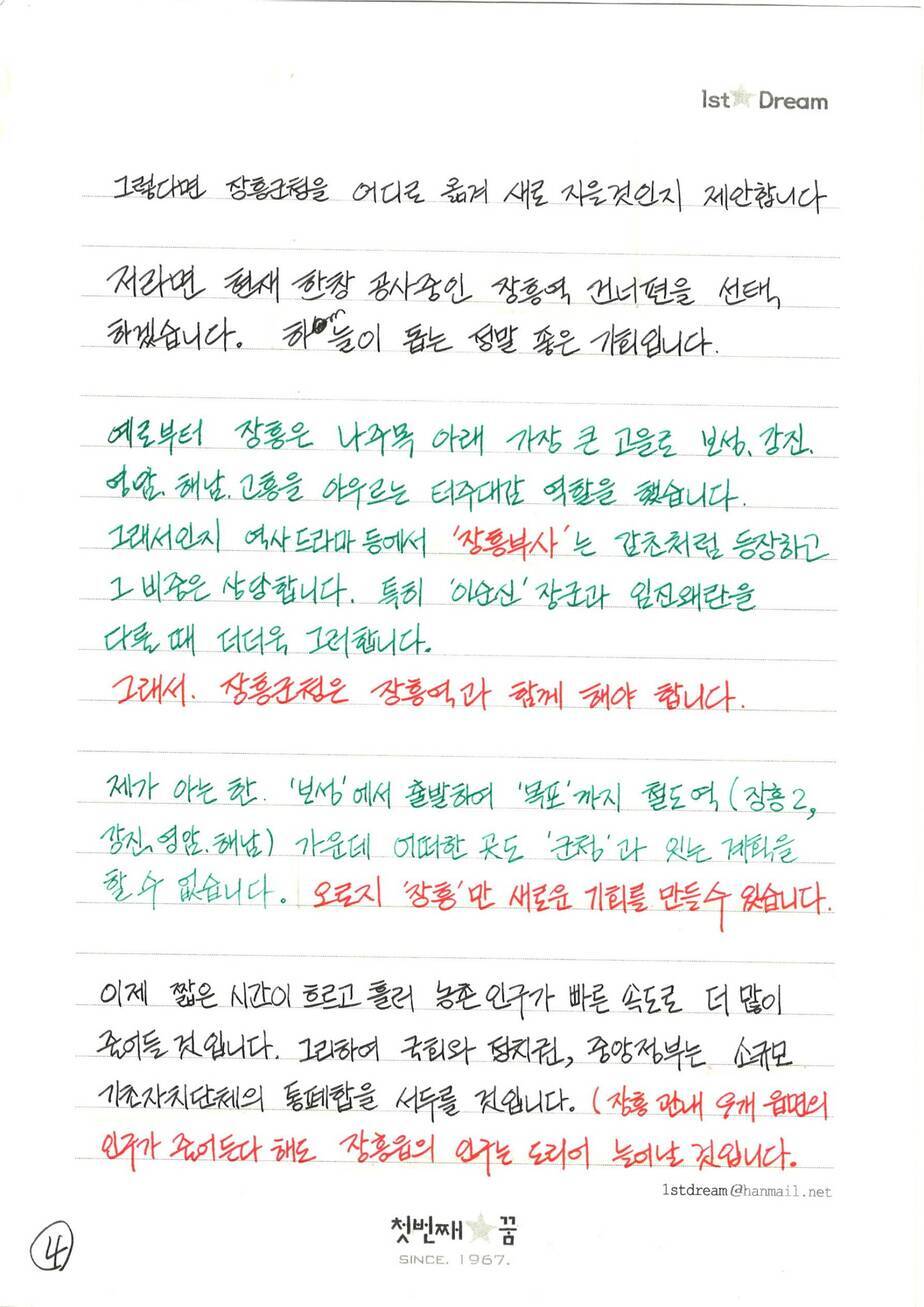 1st Dream
그렇다면 장흥군청을 어디로 옮겨 새로 지을것인지 제안합니다
저라면 현재 한창 공사중인 장흥역 건너편을 선택
하겠습니다. 하늘이 돕는 정말 좋은 기회입니다.
예로부터 장흥은 나주목 아래 가장 큰 고을로 보성, 강진,
영암, 해남, 고흥을 아우르는 터주대감 역할을 했습니다.
그래서인지 역사드라마 등에서 '장흥부사'는 감초처럼 등장하고
그 비중은 상당합니다. 특히 '이순신' 장군과 임진왜란을
다룰 때 더더욱 그러합니다.
그래서, 장흥군청은 장흥역과 함께 해야 합니다.
제가 아는 한, '보성'에서 출발하여 '목포'까지 철도역 (장흥2,
강진, 영암, 해남) 가운데 어떠한 곳도 '군청'과 잇는 계획을
할 수 없습니다. 오로지 '장흥'만 새로운 기회를 만들수 있습니다.
이제 짧은 시간이 흐르고 흘러 농촌 인구가 빠른 속도로 더 많이
줄어들 것입니다. 그리하여 국회와 정치권, 중앙정부는 소규모
기초자치단체의 통폐합을 서두를 것입니다. (장흥 관내 9개 읍면의
인구가 줄어든다 해도 장흥읍의 인구는 도리어 늘어날 것입니다.
1stdream@hanmail.net
첫번째 꿈
SINCE. 1967.
4